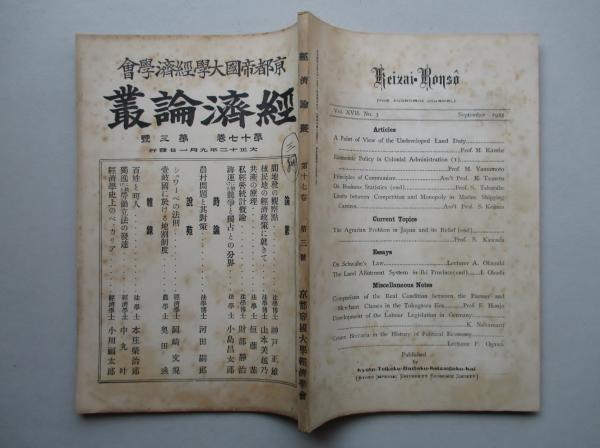 京都帝國大學經濟學會
經濟論叢
第十七卷 第三號
大正十二年九月一日發行
論叢
間地稅の觀察點 法學博士 神戶正雄
植民地の經濟政策に就きて 法學博士 山本美越乃
共產の原理 法學士 恒藤恭
私經營統計槪論 法學博士 財部靜治
海運に於ける競爭と獨占との分界 法學士 小島昌太郎
時論
農村問題と其對策 法學博士 河田嗣郎
說苑
シュワーベの法則 經濟學士 岡崎文規
壹岐國に於ける地割制度 農學士 奥田彧
雜錄
百姓と町人 法學士 本庄榮治郎
獨逸に於ける勞動立法の發達 經濟學士 中丸叶
經濟學史上のベッカリア 經濟學士 小川福太郎
經濟論叢 第十七卷 第三號 京都帝國大學經濟學會
Keizai-Ronsô
(THE ECONOMIC JOURNAL)
Vol. XVII. No. 3 September 1923
Articles
A Point of View of the Undeveloped Land Duty
Prof. M. Kambe
Economic Policy in Colonial Administration (1)
Prof. M. Yamamoto
Principles of Communism Ass't Prof. K. Tsuneto
On Business Statistics (end) Prof. S. Takarabe
Limits between Competition and Monopoly in Marine Shipping
Carriers Ass't Prof. S. Kojima
Current Topics
The Agrarian Problem in Japan and its Relief (end)
Prof. S. Kawada
Essays
On Schwabe's Law Lecturer A. Okazaki
The Land Allotment System in Iki Province (end) I. Okuda
Miscellaneous Notes
Comparison of the Real Condition between the Farmer and
Merchant Classes in the Tokugawa Era Prof. E. Honjo
Development of the Labour Legislation in Germany
K. Nakamaru
Cesare Beccaria in the History of Political Economy
Lecturer F. Ogawa
Published
by
Kyoto-Teikoku-Daigaku-Keizaigaku-Kai
(KYOTO IMPERIAL UNIVERSITY ECONOMIC SOCIETY)